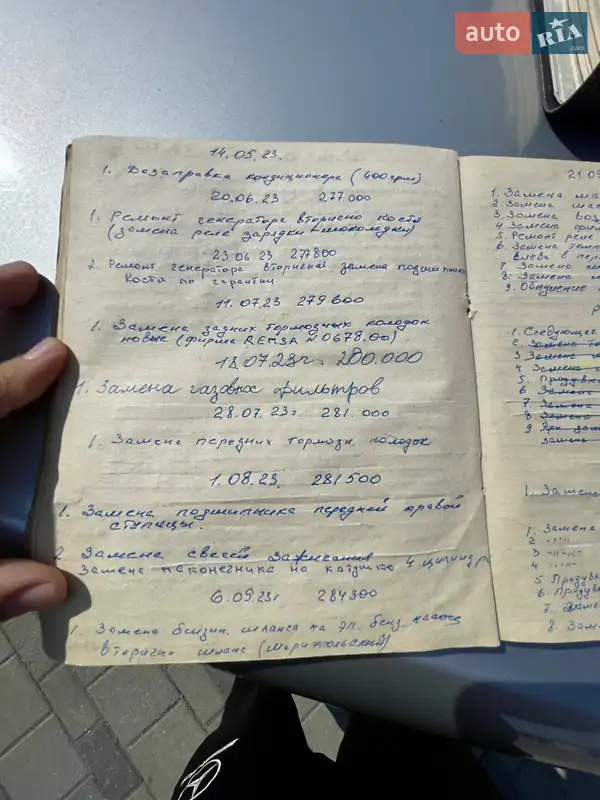 auto RIA .com
14.05.23.
1. Дозаправка кондиционера (400 грм)
20.06.23 277000
1. Ремонт генератора вторично Костя
(замена реле зарядки
23.06.23 277800
2. Ремонт генератора вторична замена подшипника
Костя по гарантии
11.07.23 279600
1. Замена задних тормозных колодок
новые (фирма REMSA N0678.00)
18.07.23г. 280.000
1. Замена газовых фильтров
28.07.23г. 281.000
1. Замена передних тормозн. колодок
1.08.23. 281500
1. Замена подшипника передней правой
ступицы.
2 Замена свечей зажигания
Замена наконечника на катушке 4 цилинд
6.09.23г 284300
1. Замена бензин. шланга на эл. бенз. насос
вторично шланг (мариупольский)
21.09
1. Замена
2. Замена
3. Замена
4 Замена
5. Ремонт реле
6. Замена
7 Замена
8. Замена
9.
1. Следующее
2. Замена
3 Замена
4 Замена
5. Продувка
6 Замена
7 Замена
8 Замена
9 При
замена
1.
1. Замена
2 -"-"-
3 -"-"-
4 -"-"-
5 Продувка
6. Продувка
7. Замена
8. Зам